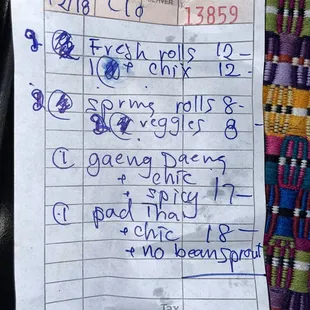 12/18 C10 13859
2 Fresh rolls 12-
1 + chix 12-
spring rolls 8-
veggles 8-
① gaeng Daeng
+ chic
+ spicy 17-
① pad Thai
+ chic 18-
+ no beansprout
Tax